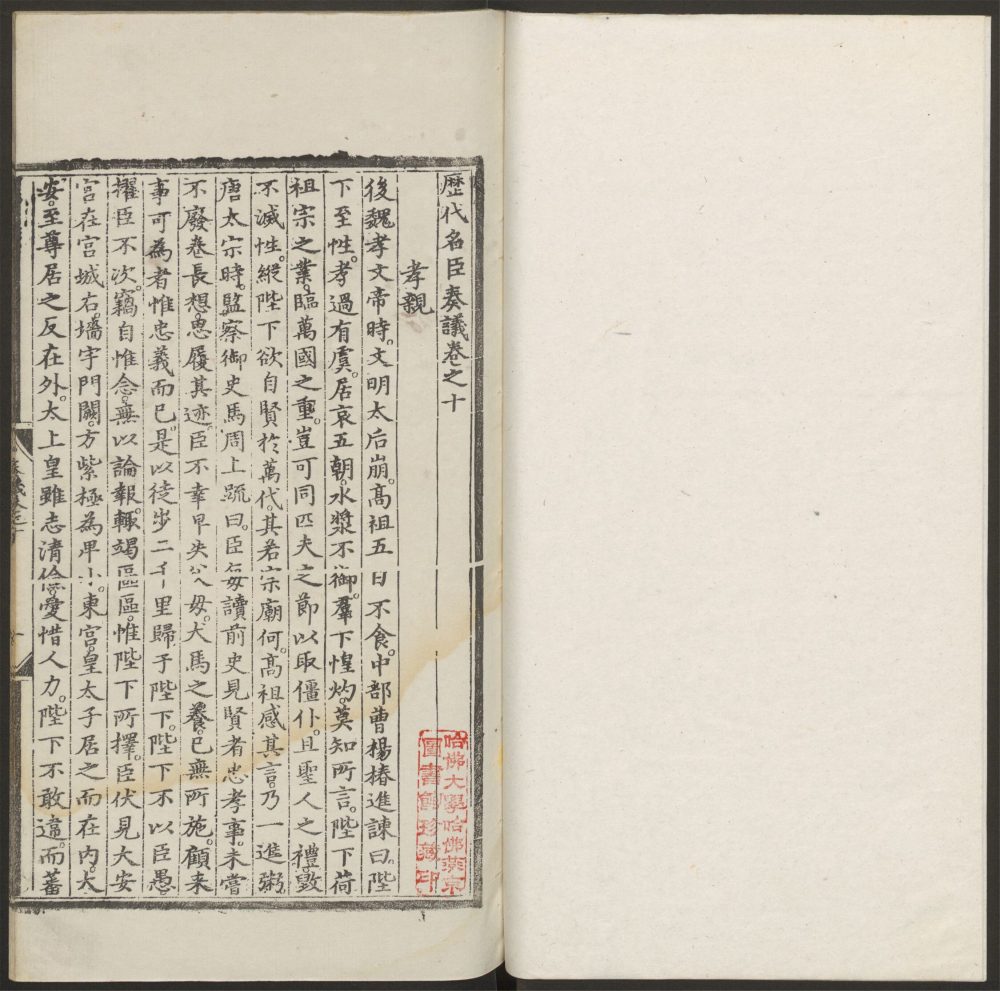 歷代名臣奏議卷之十
孝親
後魏孝文帝時。文明太后崩。高祖五日不食。中部曹楊椿進諫曰。陛
下至性。孝過有虞。居哀五朝。水漿不御。羣下惶灼。莫知所言。陛下荷
祖宗之業。臨萬國之重。豈可同匹夫之節以取僵仆。且聖人之禮。毀
不滅性。縱陛下欲自賢於萬代。其若宗廟何。高祖感其言。乃一進粥
唐太宗時。監察御史馬周上疏曰。臣每讀前史見賢者忠孝事。未嘗
不廢卷長想。思履其迹。臣不幸早失父母。犬馬之養。已無所施。顧来
事可為者惟忠義而已。是以徒步二千里歸于陛下。陛下不以臣愚
擢臣不次。竊自惟念。無以論報。輒竭區區。惟陛下所擇。臣伏見大安
宫在宫城右。墻宇門闕。方紫極為卑小。東宫。皇太子居之而在内。大
安。至尊居之反在外。太上皇雖志清儉。愛惜人力。陛下不敢違。而蕃
哈佛大學哈佛燕京
圖書館珍藏印